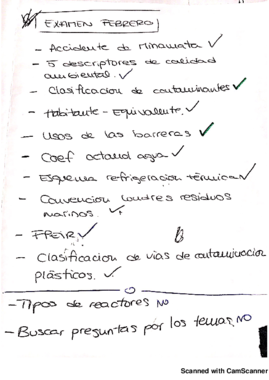 EXAMEN FEBRERO
- Accidente de Minamata ✓
- 5 descriptores de calidad
ambiental. ✓
- Clasificacion de contaminantes ✓
- Habitante - Equivalente. ✓
- Usos de las barreras ✓
- Coef octanol agua ✓
- Esquema refrigeracion térmica ✓
- Convencion Londres residuos
marinos. ✓
- FREIR ✓
- Clasificacion de vias de contaminacion
plásticos. ✓
- Tipos de reactores NO
- Buscar preguntas por los temas NO
Scanned with CamScanner